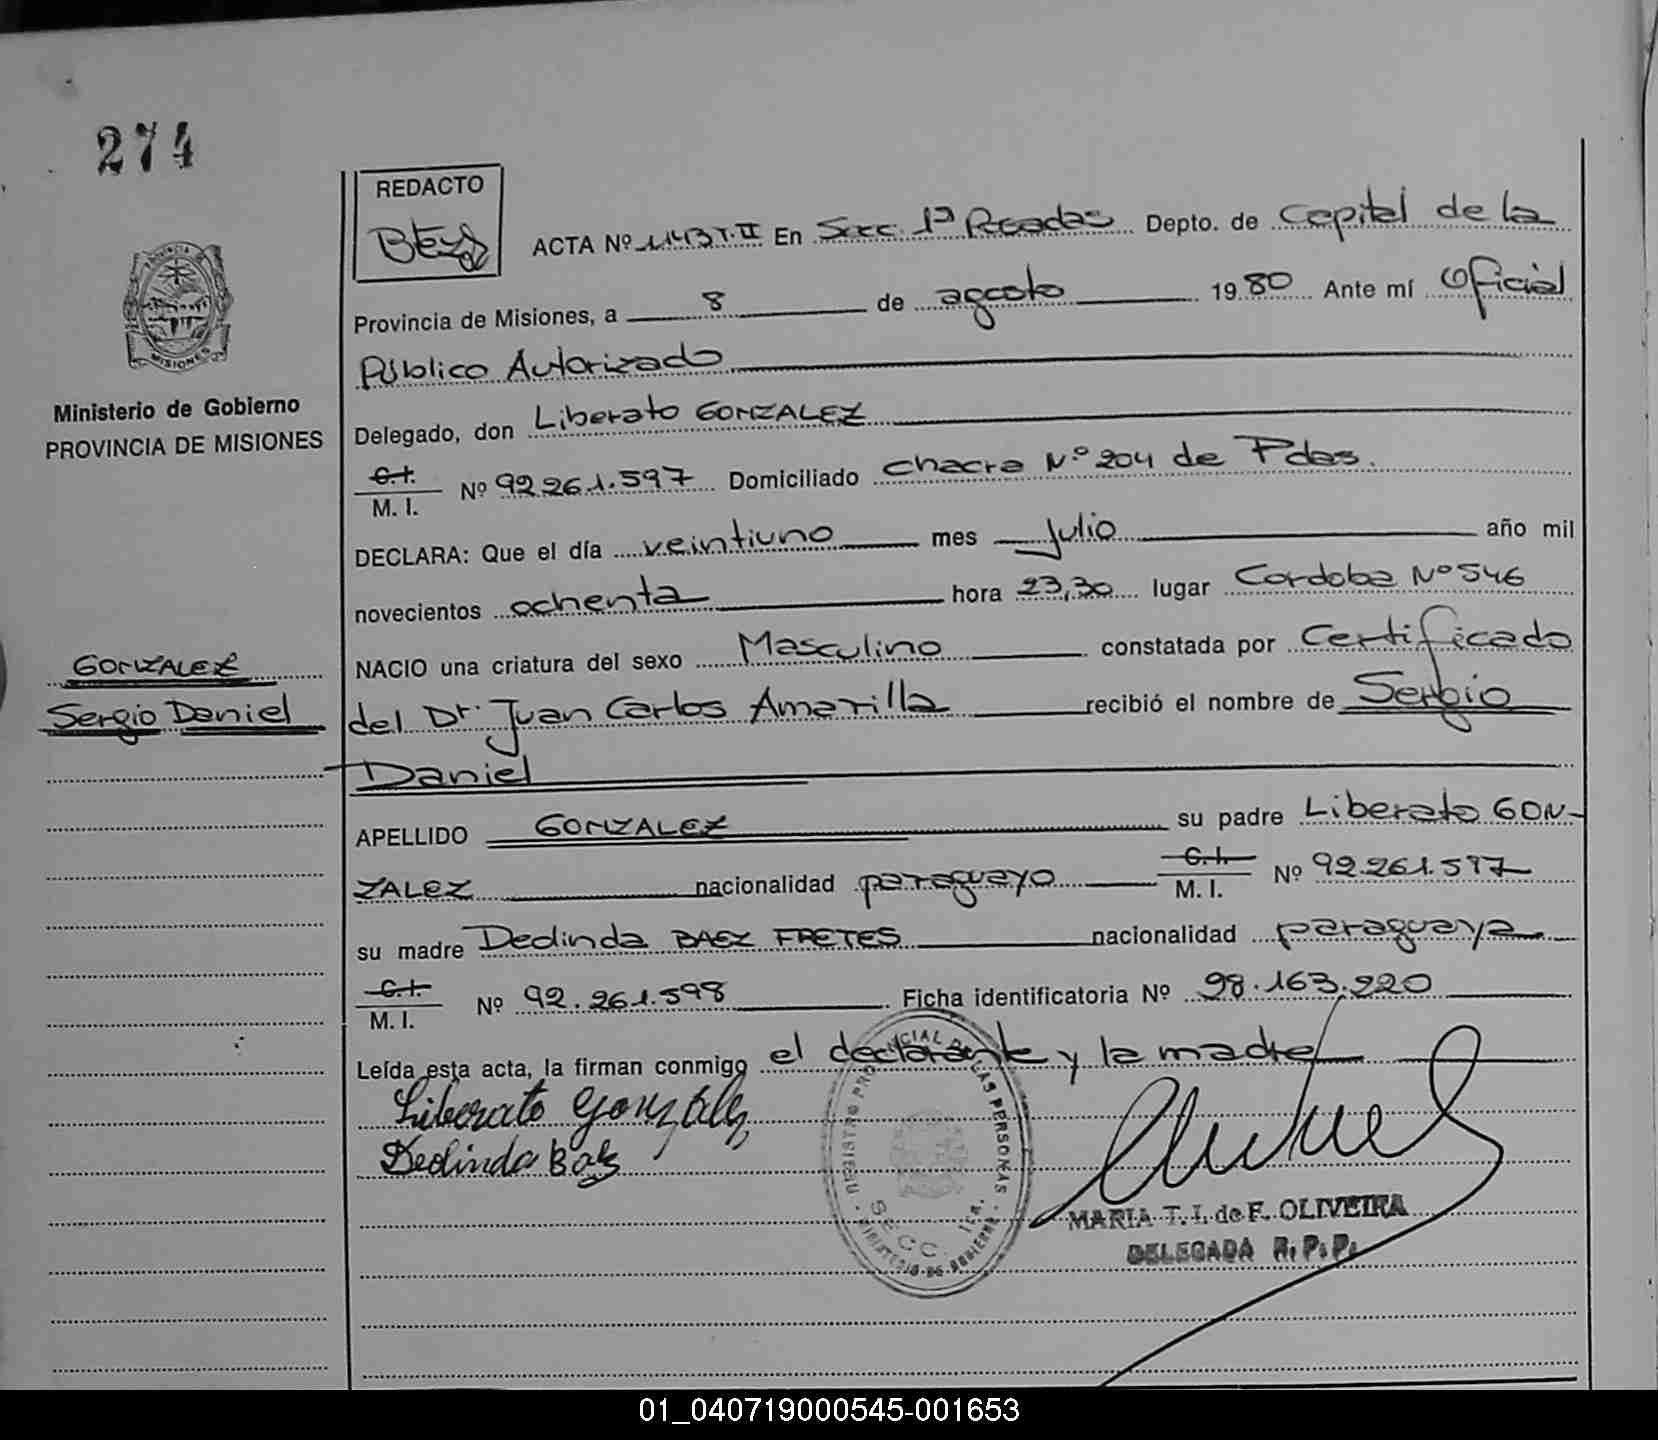 274
REDACTO
ACTA Nº 1143 T. II En Secc. 1ª Posadas Depto. de Capital de la
Provincia de Misiones, a 8 de agosto 1980 Ante mí Oficial
Público Autorizado
Ministerio de Gobierno
PROVINCIA DE MISIONES
Delegado, don Liberato GONZALEZ
C.I.
M. I. Nº 92.261.597 Domiciliado chacra Nº 204 de Pdas.
DECLARA: Que el día veintiuno mes Julio año mil
novecientos ochenta hora 23,30 lugar Cordoba Nº 546
NACIO una criatura del sexo Masculino constatada por Certificado
GONZALEZ
Sergio Daniel
del Dr. Juan Carlos Amarilla recibió el nombre de Sergio
Daniel
APELLIDO GONZALEZ su padre Liberato GON-
ZALEZ nacionalidad paraguayo C.I. M. I. Nº 92.261.597
su madre Deolinda BAEZ FRETES nacionalidad paraguaya
C.I.
M. I. Nº 92.261.598 Ficha identificatoria Nº 98.163.220
Leída esta acta, la firman conmigo el declarante y la madre
Liberato Gonzalez
Deolinda Baez
REGISTRO PROVINCIAL DE LAS PERSONAS
SECC. 1RA.
MINISTERIO DE GOBIERNO
MARIA T. I. de F. OLIVEIRA
DELEGADA R. P. P.
01_040719000545-001653